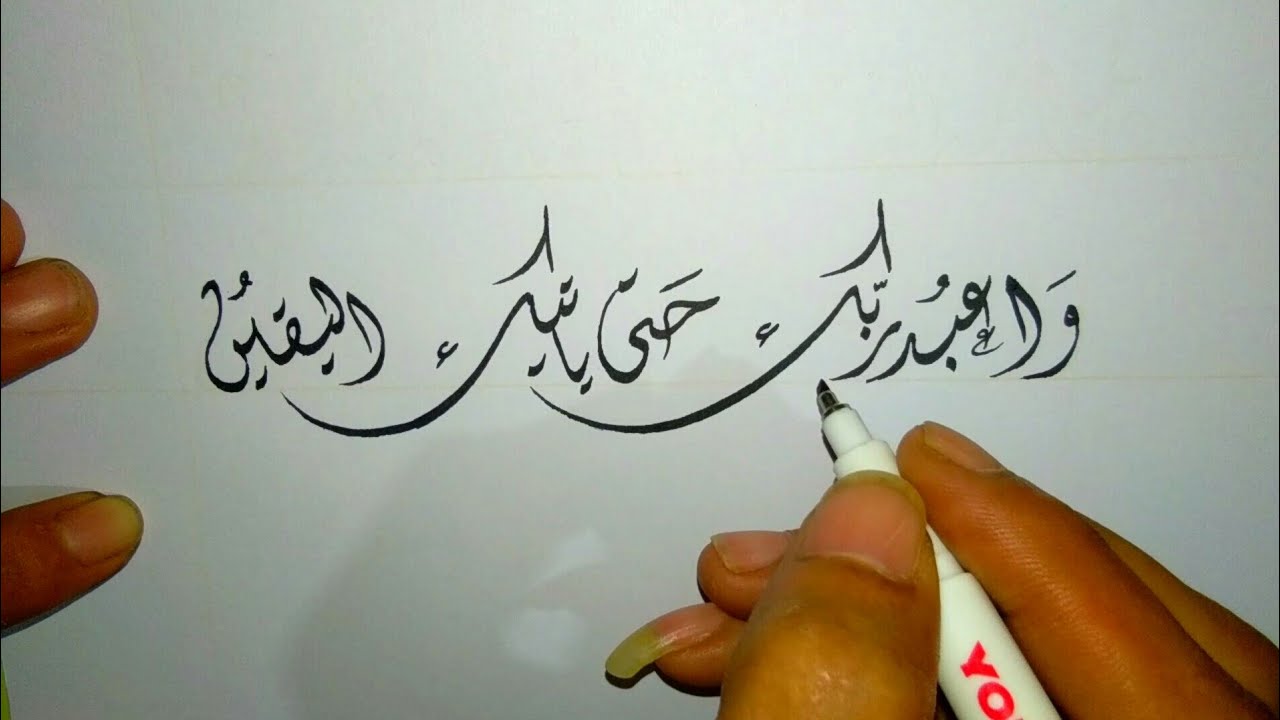 وَاعبُد ربّك حَتّى ياتيك اليقينُ
YO